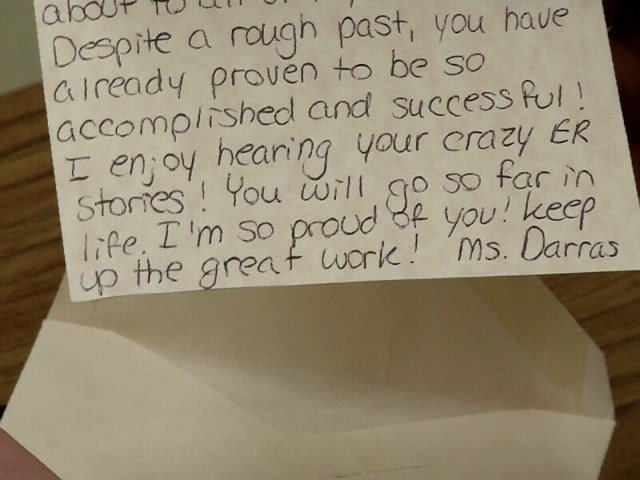 about to
Despite a rough past, you have
already proven to be so
accomplished and successful!
I enjoy hearing your crazy ER
stories! You will go so far in
life. I'm so proud of you! keep
up the great work! Ms. Darras